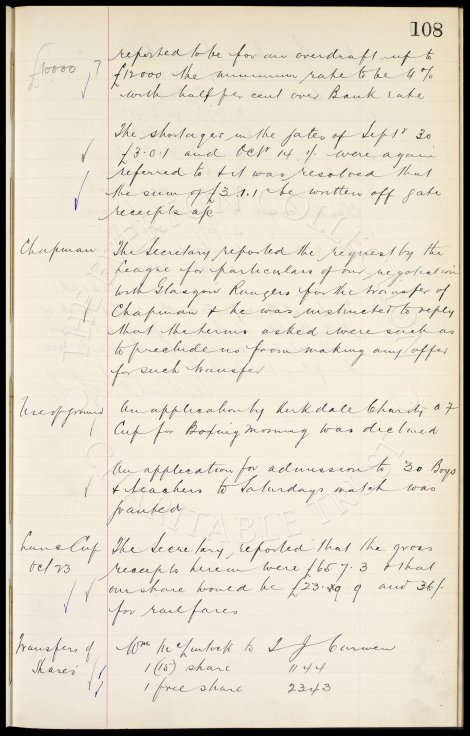 108
£10000 ? reported to be for an overdraft up to
£12000 the minimum rate to be 4%
with half per cent over Bank rate
The shortages in the gates of Septr 30
£3.0.1 and Octr 14 1/. were again
referred to & it was resolved that
the sum of £3.1.1 be written off gate
receipts a/c
Chapman The Secretary reported the request by the
League for particulars of our negotiation
with Glasgow Rangers for the transfer of
Chapman & he was instructed to reply
that the terms asked were such as
to preclude us from making any offer
for such transfer
Use of ground An application by Kirkdale Charity
Cup for Boxing Morning was declined
An application for admission to 30 Boys
& teachers to Saturdays match was
granted
Lancs Cup The Secretary reported that the gross
Oct 23 receipts herein were £65 7.3 & that
our share would be £23. 9 and 36/.
for rail fares
Transfers of Wm McClintock to J
Shares 1 (15) share 1144
1 free share 2343